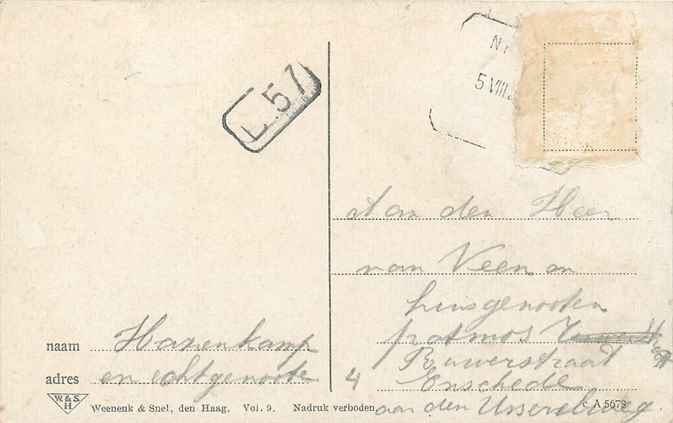 N
5 VIII.
L.57
at an den Heer
van Veen en
huisgenooten
patmos
Buwerstraat
4 Enschede
aan den Usselerweg
naam Havenkamp
adres en echtgenoote
W & S
H
Weenenk & Snel, den Haag. Vol. 9. Nadruk verboden.
c A 5678